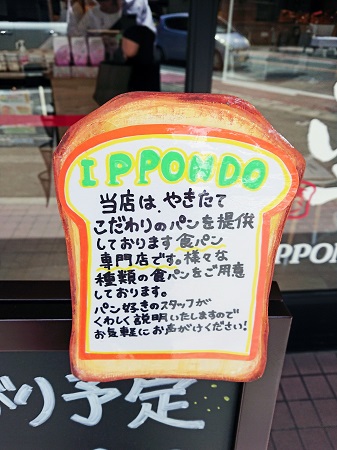 IPPONDO
当店は、やきたて
こだわりのパンを提供
しております食パン
専門店です。様々な
種類の食パンをご用意
しております。
パン好きのスタッフが
くわしく説明いたしますので
お気軽にお声がけください!
PPON
り予定